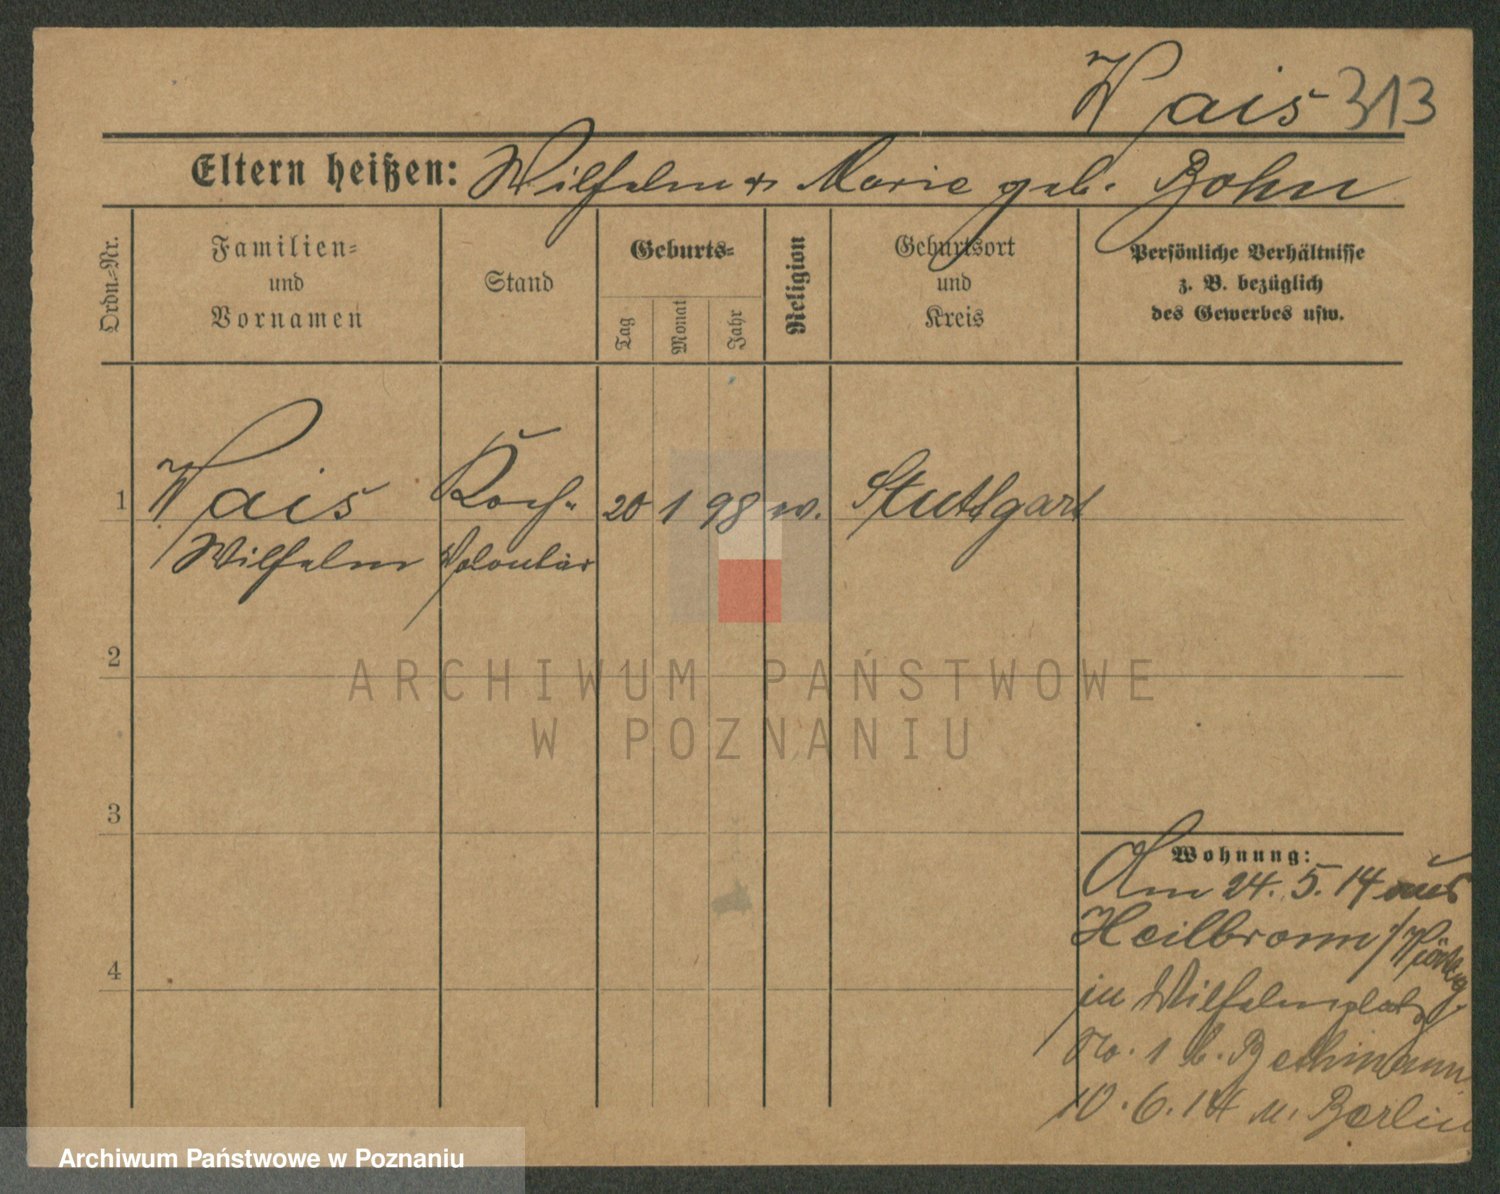 Wais 313
Eltern heißen: Wilhelm u. Marie geb. Bohn
Ordn.=Nr.
Familien=
und
Vornamen
Stand
Geburts=
Tag
Monat
Jahr
Religion
Geburtsort
und
Kreis
Persönliche Verhältnisse
z. B. bezüglich
des Gewerbes usw.
1 Wais Koch= 20 1 98 ev. Stuttgart
Wilhelm Volontär
2
3
4
Wohnung:
Am 24. 5. 14 aus
Heilbronn / Württbg.
in Wilhelmplatz
No. 1 b. Bethmann
10. 6. 14 n. Berlin
ARCHIWUM PAŃSTWOWE
W POZNANIU
Archiwum Państwowe w Poznaniu